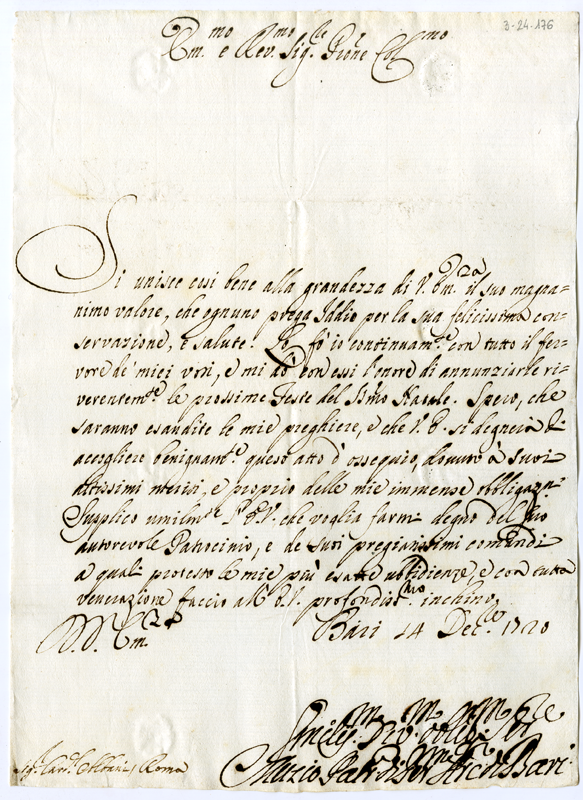 3-24-176
Em.mo e Rev.mo Sig.re P̃rone Col.mo
Si unisce così bene alla grandezza di V. Em.za il suo magna-
nimo valore, che ognuno prega Iddio per la sua felicissima con-
servazione, e salute. Lo fò io continuam.te con tutto il fer-
vore de' miei voti, e mi dò con essi l'onore di annunziarle ri-
verentem.te le prossime Feste del S.mo Natale. Spero, che
saranno esaudite le mie preghiere, e che V. E. si degnerà di
accogliere benignam.te questo atto d'ossequio, dovuto à suoi
altissimi meriti, e proprio delle mie immense obbligaz.ni
Supplico umilm.te l'E. V. che voglia farmi degno del suo
autorevole Patrocinio, e de suoi pregiatissimi comandi
a quali protesto le mie più esatte ubbidienze, e con tutta
venerazione faccio all'E. V. profondiss.mo inchino
D. V. Em.za Bari 14 Dec.e 1720
Umiliss.mo Div.mo obblig.mo Ser.re
Muzio Arc. di Bari
Sig.r Card.l Albani, Roma